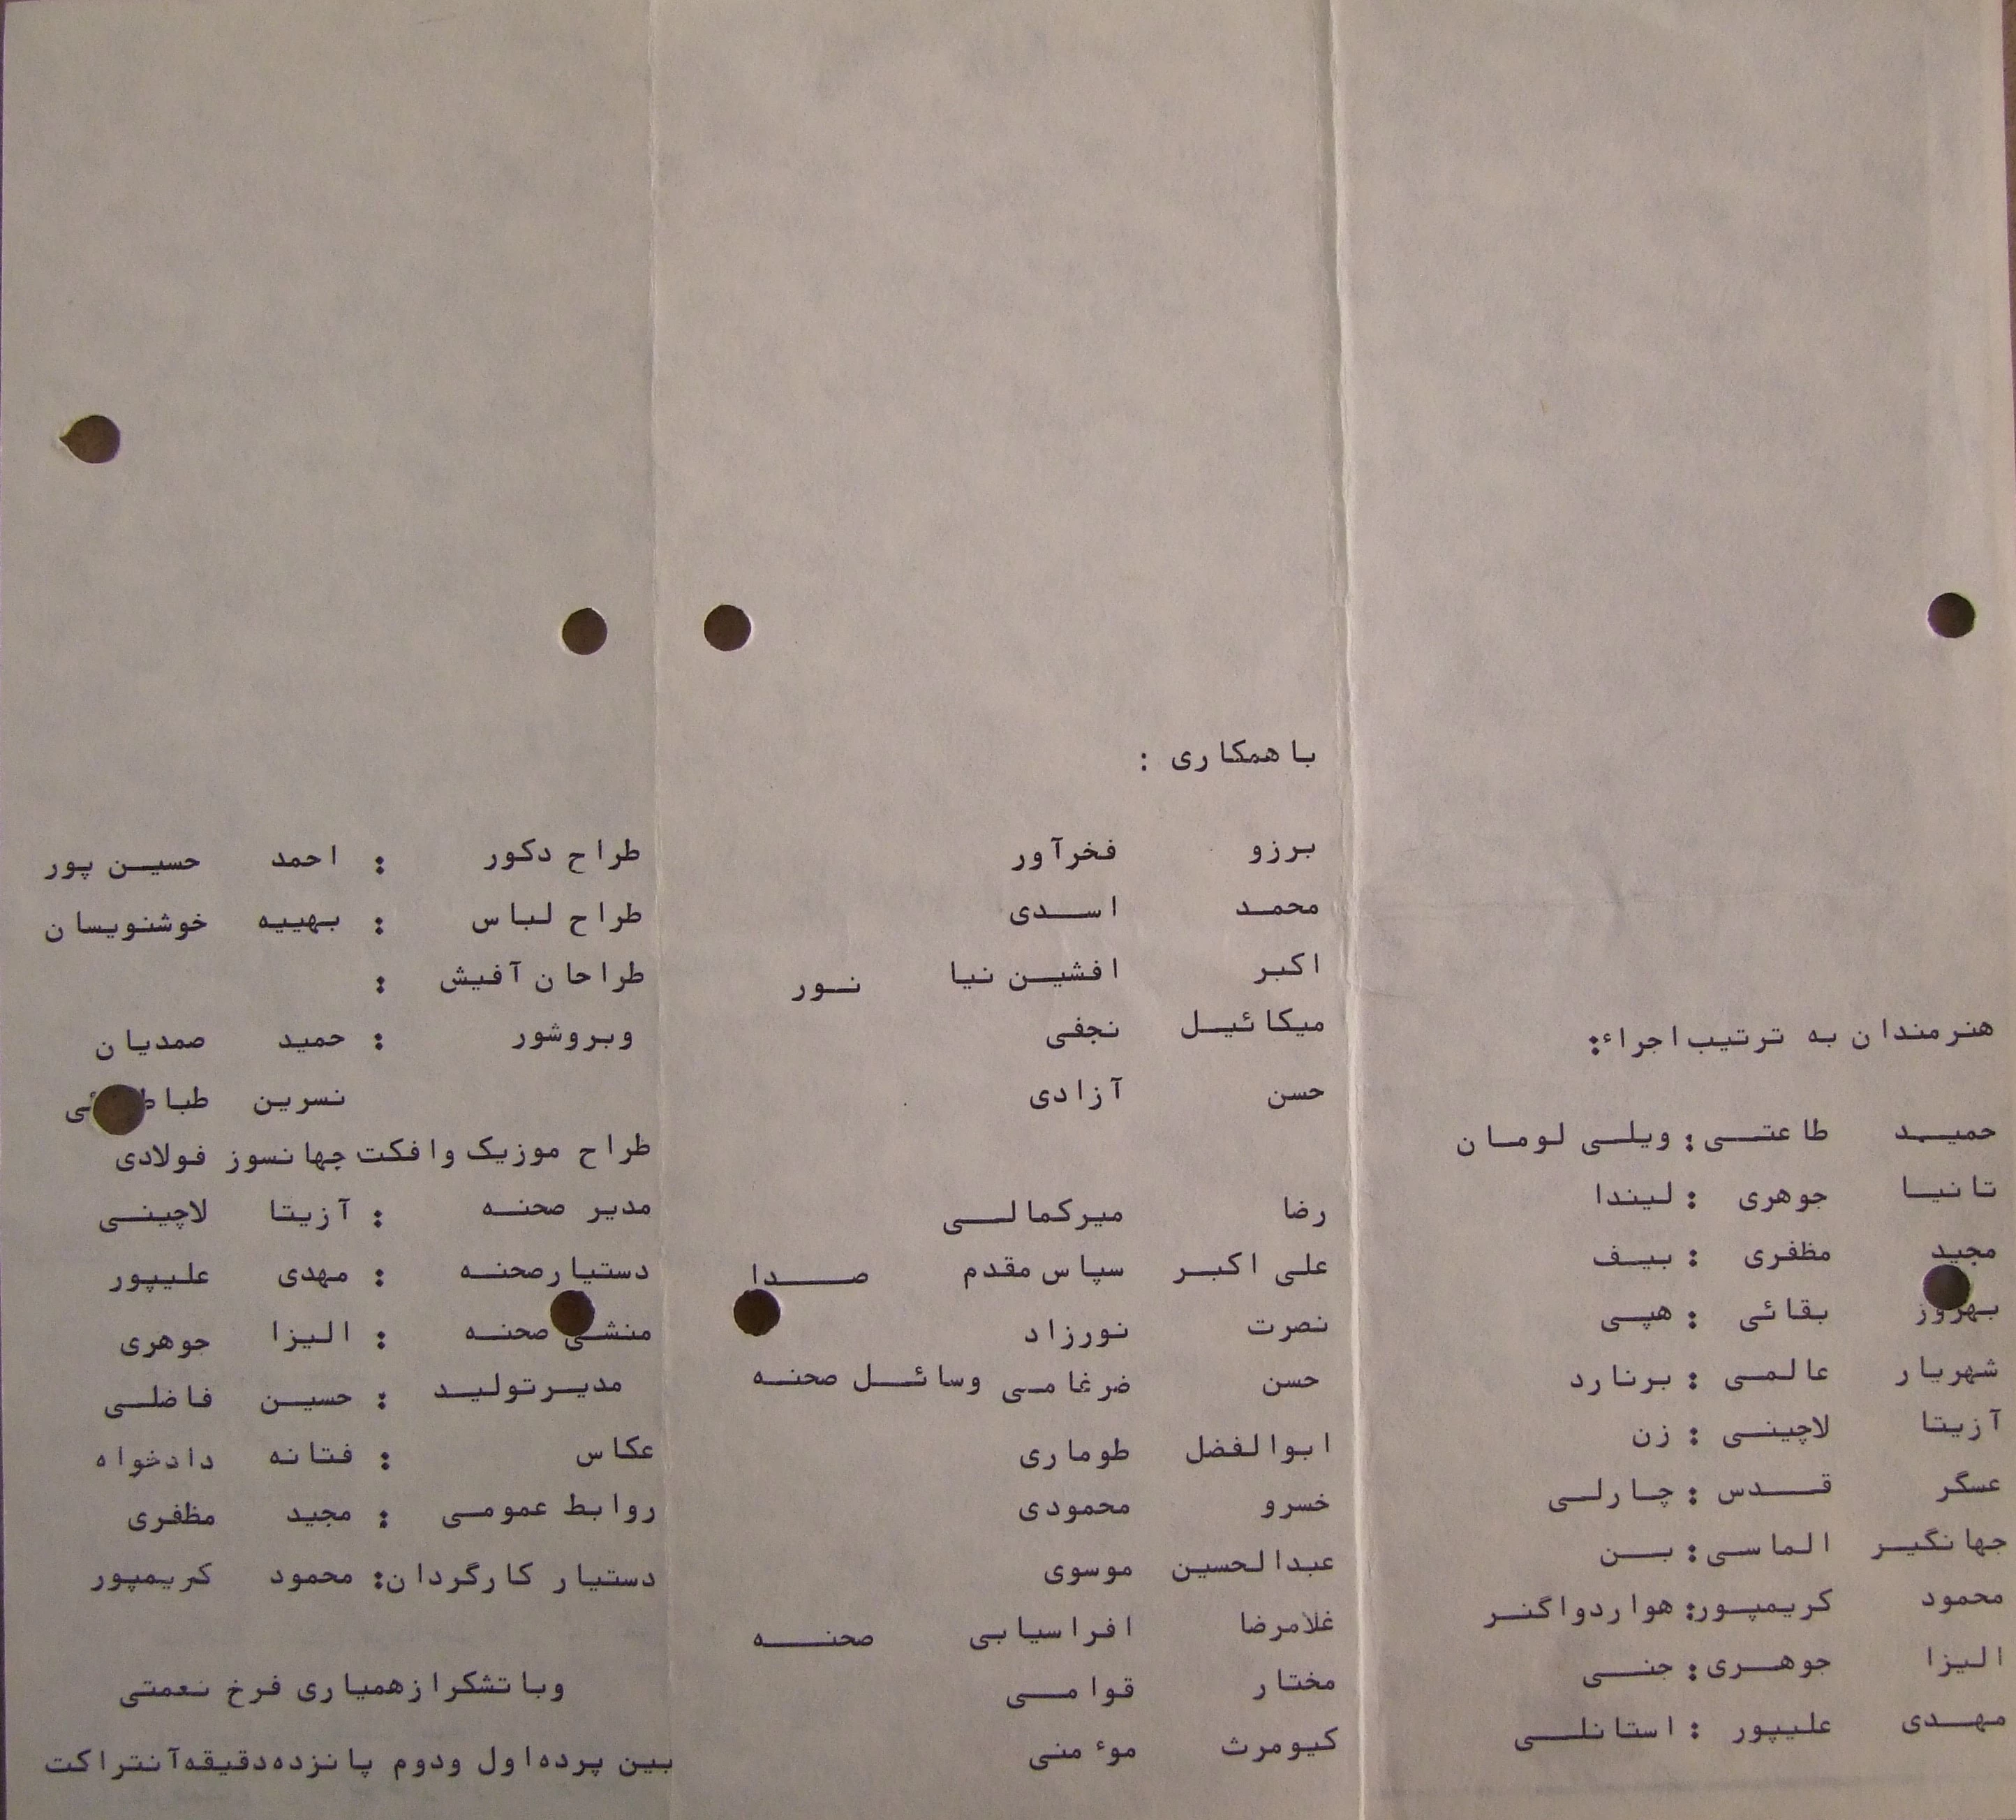 هنرمندان به ترتیب اجراء:
حمید طاعتی : ویلی لومان
تانیا جوهری : لیندا
مجید مظفری : بیف
بهروز بقائی : هپی
شهریار عالمی : برنارد
آزیتا لاچینی : زن
عسگر قدس : چارلی
جهانگیر الماسی : بن
محمود کریمپور: هواردواگنر
الیزا جوهری : جنی
مهدی علیپور : استانلی
با همکاری :
برزو فخرآور
محمد اسدی
اکبر افشین نیا نور
میکائیل نجفی
حسن آزادی
رضا میرکمالی
علی اکبر سپاس مقدم صدا
نصرت نورزاد
حسن ضرغامی وسائل صحنه
ابوالفضل طوماری
خسرو محمودی
عبدالحسین موسوی
غلامرضا افراسیابی صحنه
مختار قوامی
کیومرث موٴمنی
طراح دکور : احمد حسین پور
طراح لباس : بهییه خوشنویسان
طراحان آفیش :
وبروشور : حمید صمدیان
نسرین
طراح موزیک وافکت جهانسوز فولادی
مدیر صحنه : آزیتا لاچینی
دستیارصحنه : مهدی علیپور
منشی صحنه : الیزا جوهری
مدیرتولید : حسین فاضلی
عکاس : فتانه دادخواه
روابط عمومی : مجید مظفری
دستیار کارگردان: محمود کریمپور
وباتشکرازهمیاری فرخ نعمتی
بین پرده‌اول ودوم پانزده‌دقیقه‌آنتراکت